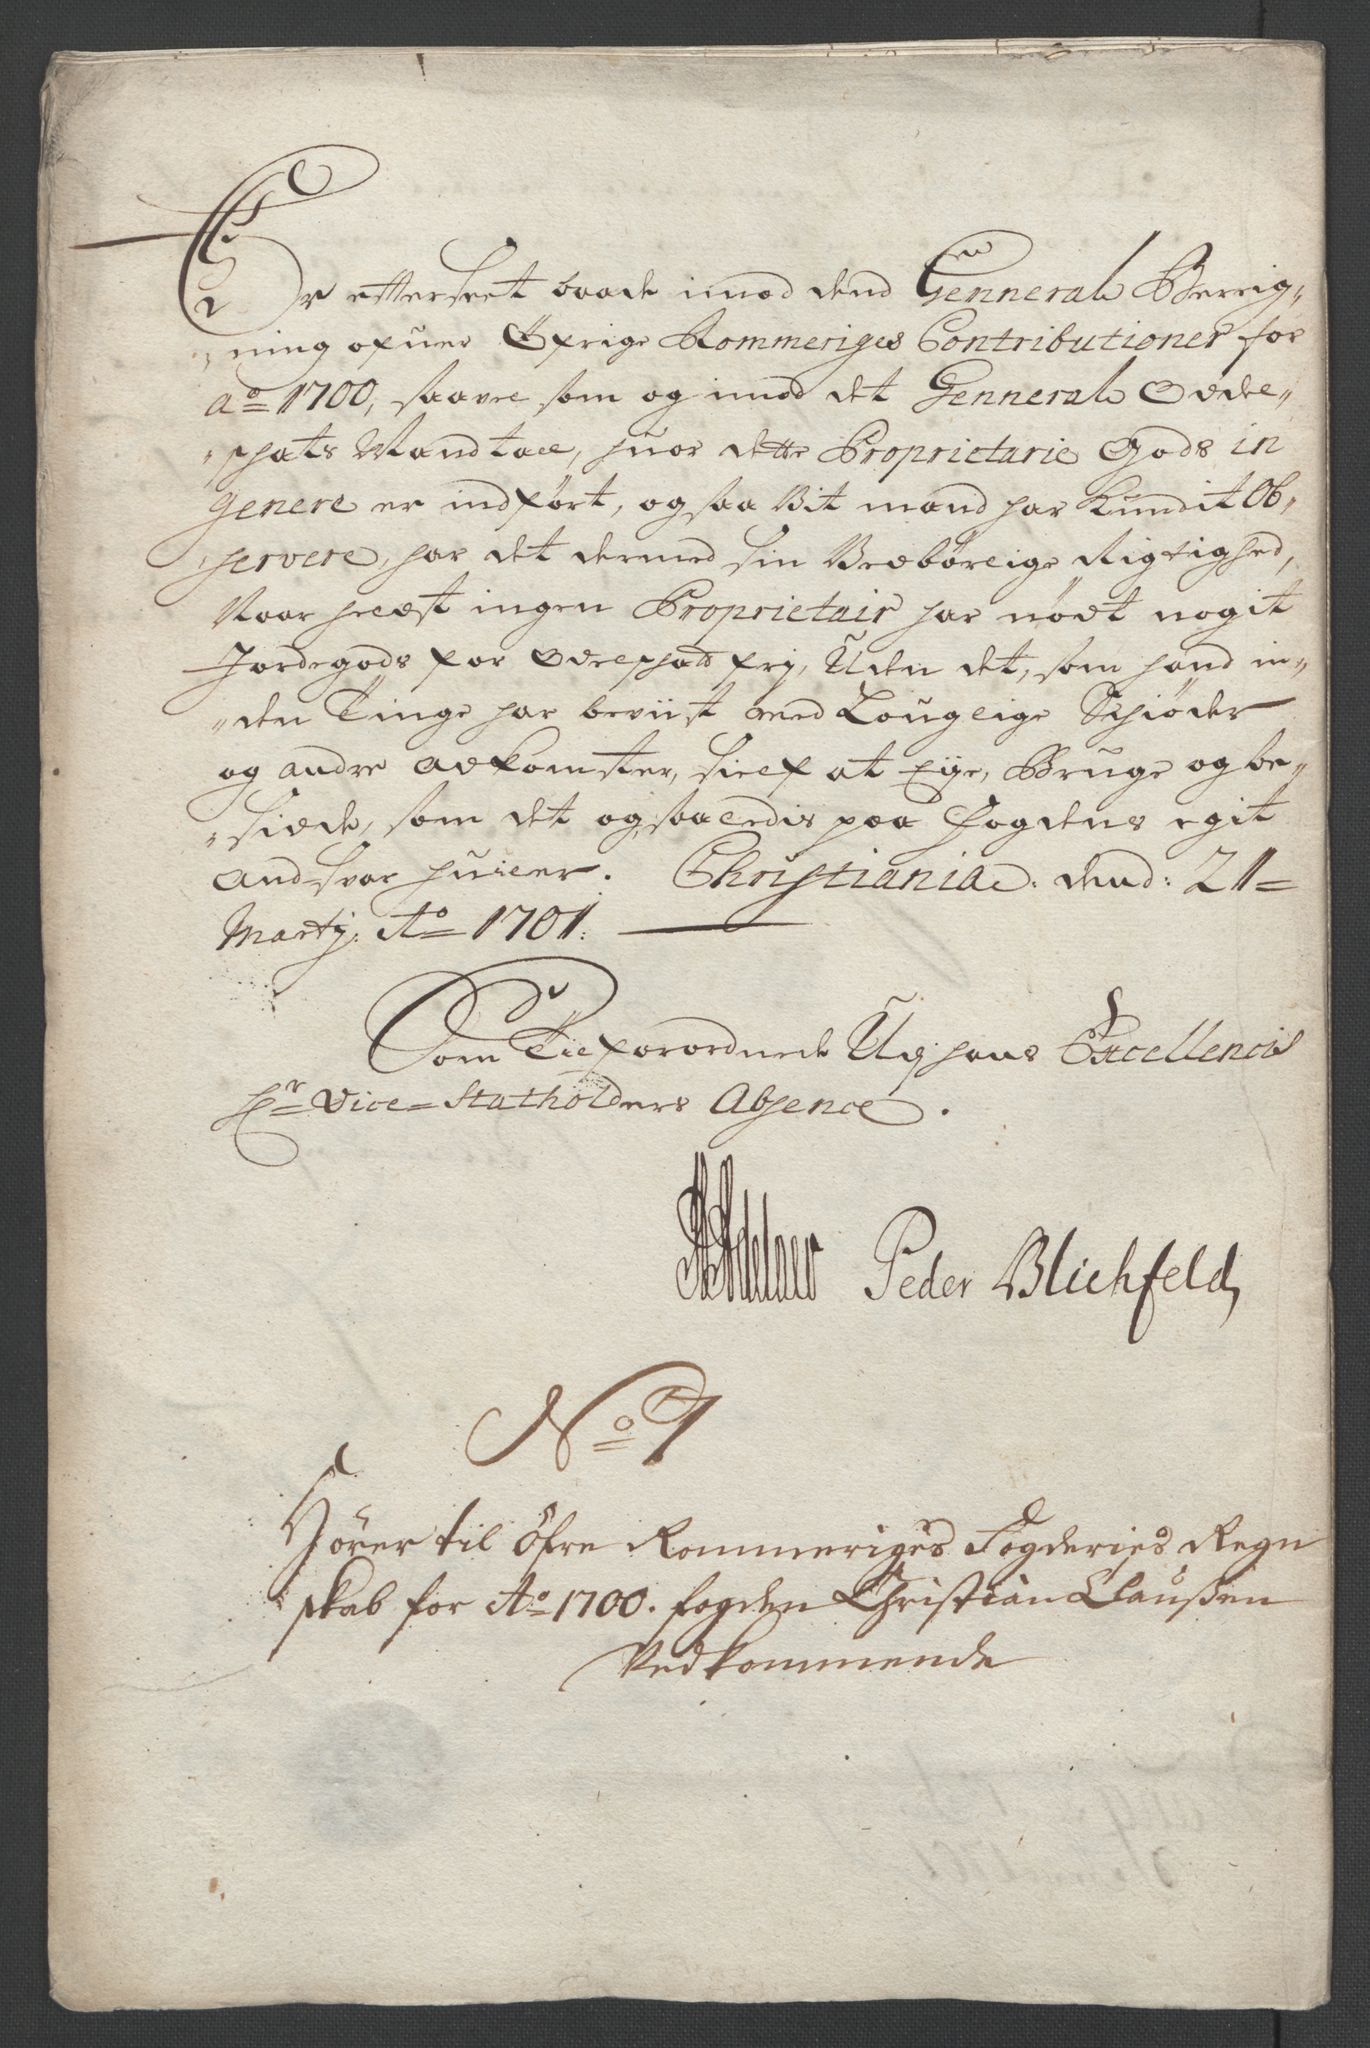 Er efterseet baade imod dend Genneral Bereig„
„ning ofuer Øfrige Rommeriges Contributioner for
Ao 1700, saavel som og imod det Genneral Odels„
„schats Mandtall, huor dette Proprietarie Gods in
genere er indført, og saa Vit mand har kundit Ob„
„servere, har det dermed sin Vedbørlige Rigtighed,
Naar heelst ingen Proprietair har nødt nogit
Jordegods for Odelschatt frj, Uden det, som hand in„
„den Tinge har beviist med Louglige Schiøder
og andre adkomster, sielf at Eije, Bruge og be„
„sidde, som det og saaledis paa Fogdens egit
Andsvar huiler. Christiania. dend: 21=
Martij. Ao 1701.
Som Tilforordnede Udj hans Excellences
Hr Vice=Statholders Absence.
Adelaer Peder Blichfeld,
No 7
Hører til Øfre Rommeriges Fogderies Regn
skab for Ao 1700. fogden Christian Claußen
Vedkommende